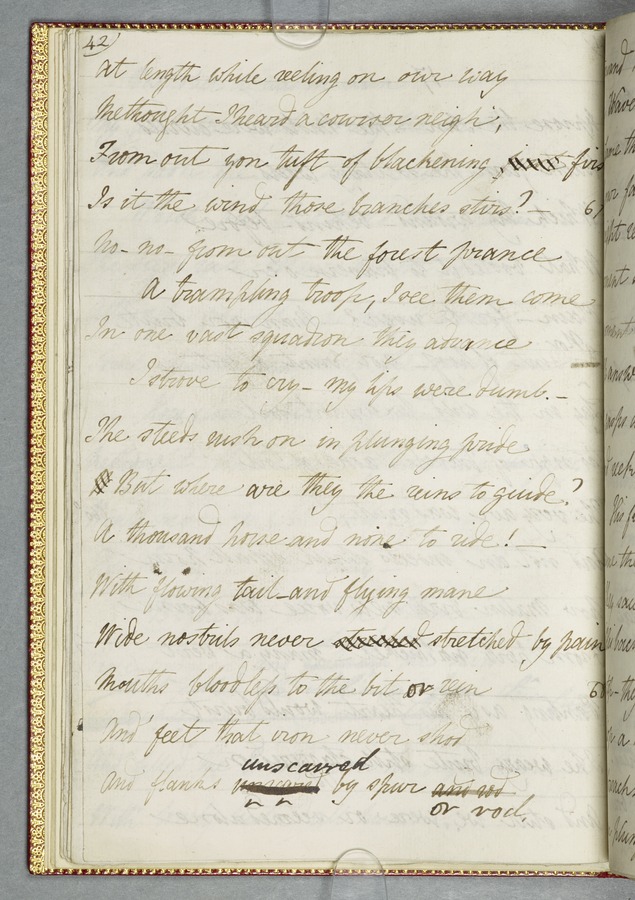 42
At length while reeling on our way
Methought I heard a courser neigh,
From out yon tuft of blackening firs
Is it the wind those branches stirs? -
No - no - from out the forest prance
A trampling troop, I see them come
In one vast squadron they advance
I strove to cry - my lips were dumb. -
The steeds rush on in plunging pride
But where are they the reins to guide?
A thousand horse and none to ride! -
With flowing tail - and flying mane
Wide nostrils never stretched by pain
Mouths bloodless to the bit or rein
And feet that iron never shod
unscarred
And flanks by spur and rod
or rod.